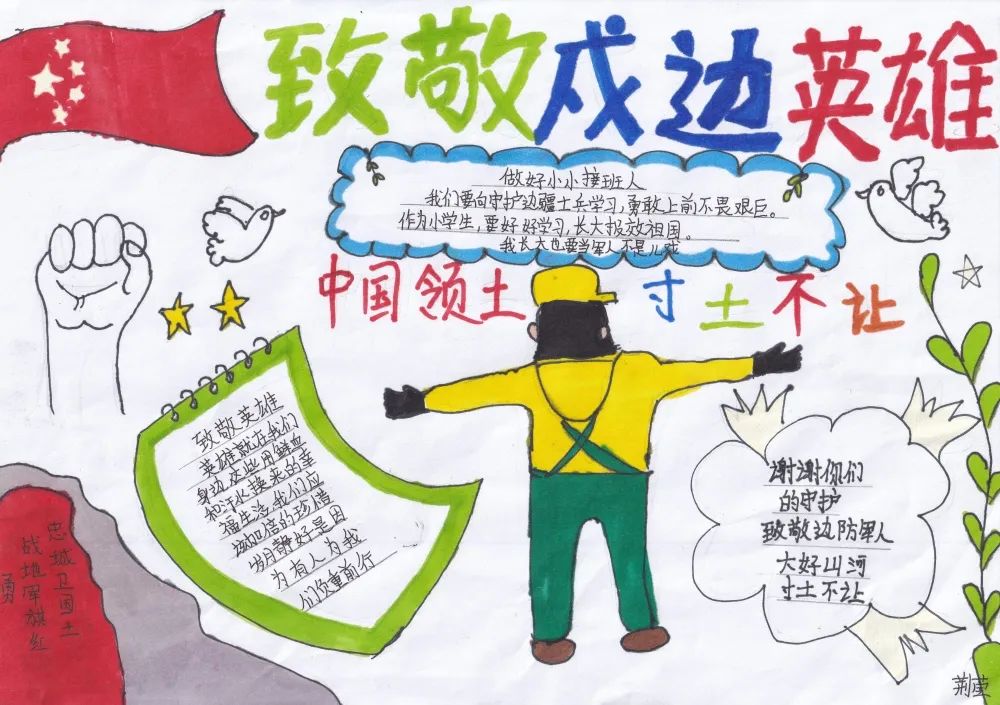 致敬戍边英雄
做好小小接班人
我们要向守护边疆士兵学习,勇敢上前不畏艰巨。
作为小学生,要好好学习,长大报效祖国。
我长大也要当军人不是儿戏
中国领土 寸土不让
致敬英雄
英雄就在我们
身边,这些用鲜血
和汗水换来的幸
福生活,我们应
该加倍的珍惜
岁月静好是因
为有人为我
们负重前行
谢谢你们
的守护
致敬边防军人
大好山河
寸土不让
忠诚卫国土
战地军旗红
勇